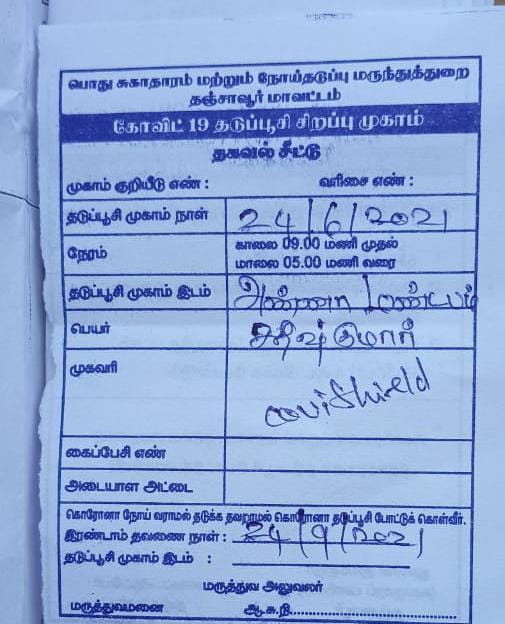 பொது சுகாதாரம் மற்றும் நோய்தடுப்பு மருந்துத்துறை
தஞ்சாவூர் மாவட்டம்
கோவிட் 19 தடுப்பூசி சிறப்பு முகாம்
தகவல் சீட்டு
முகாம் குறியீடு எண் : வரிசை எண் :
தடுப்பூசி முகாம் நாள் 24/6/2021
நேரம் காலை 09.00 மணி முதல்
மாலை 05.00 மணி வரை
தடுப்பூசி முகாம் இடம் அண்ணா மண்டபம்
பெயர் சதிஷ்குமார்
முகவரி
covishield
கைப்பேசி எண்
அடையாள அட்டை
கொரோனா நோய் வராமல் தடுக்க தவறாமல் கொரோனா தடுப்பூசி போட்டுக் கொள்வீர்.
இரண்டாம் தவணை நாள் : 24/9/2021
தடுப்பூசி முகாம் இடம் :
மருத்துவ அலுவலர்
மருத்துவமனை ஆ.சு.நி.